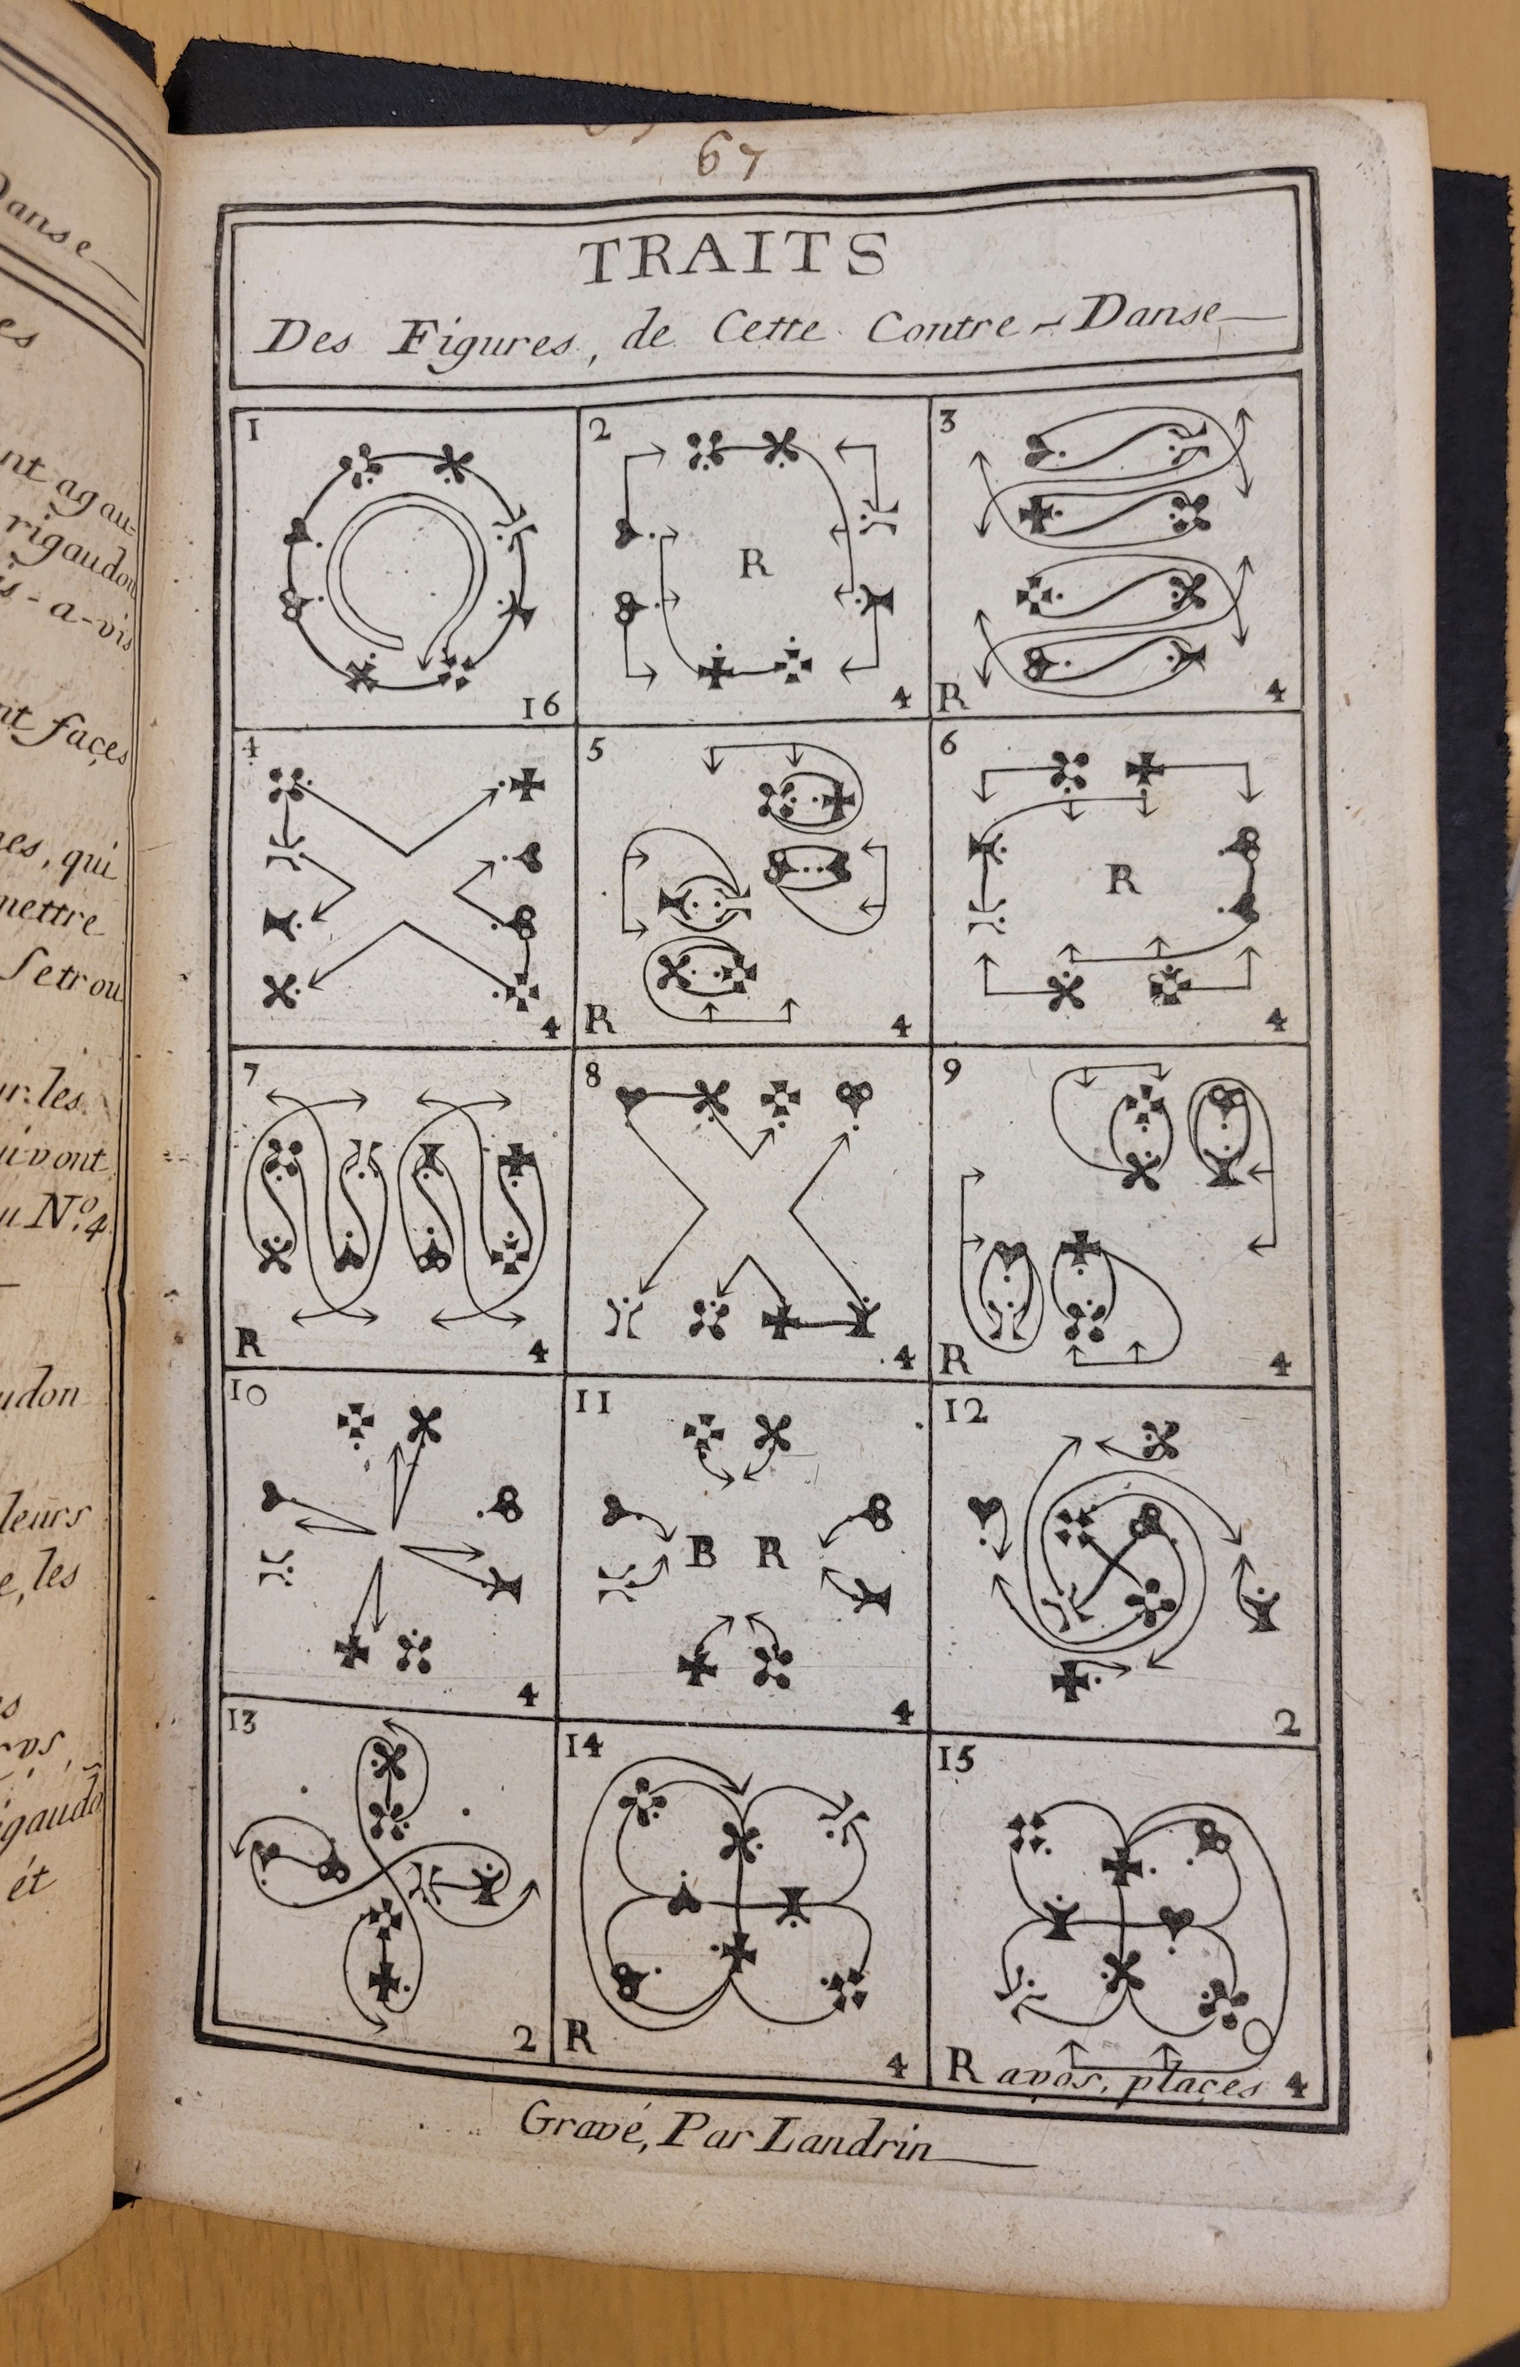 Danse
es
nt agau=
rigaudon
is-a-vis
nt façes
nes, qui
mettre
Setrou
ur: les
uivont
u N.º 4
udon
leurs
e, les
s
ros,
igaudõ
ét
67
TRAITS
Des Figures, de Cette Contre-Danse
1
16
2
R
4
3
R
4
4
4
5
R
4
6
R
4
7
R
4
8
4
9
R
4
10
4
11
B R
4
12
2
13
2
14
R
4
15
R avos, plaçes 4
Gravé, Par Landrin